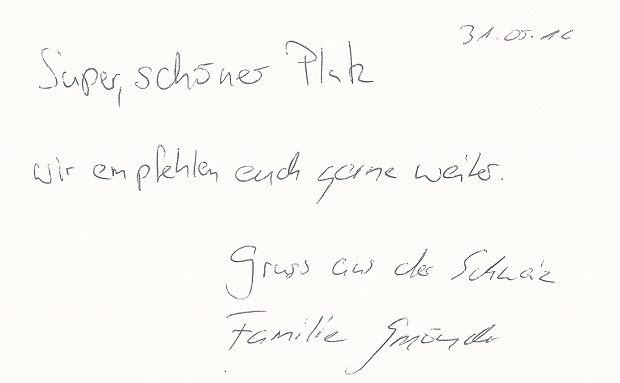 31.05.16
Super, schöner Platz
wir empfehlen euch gerne weiter.
Gruss aus der Schweiz
Familie